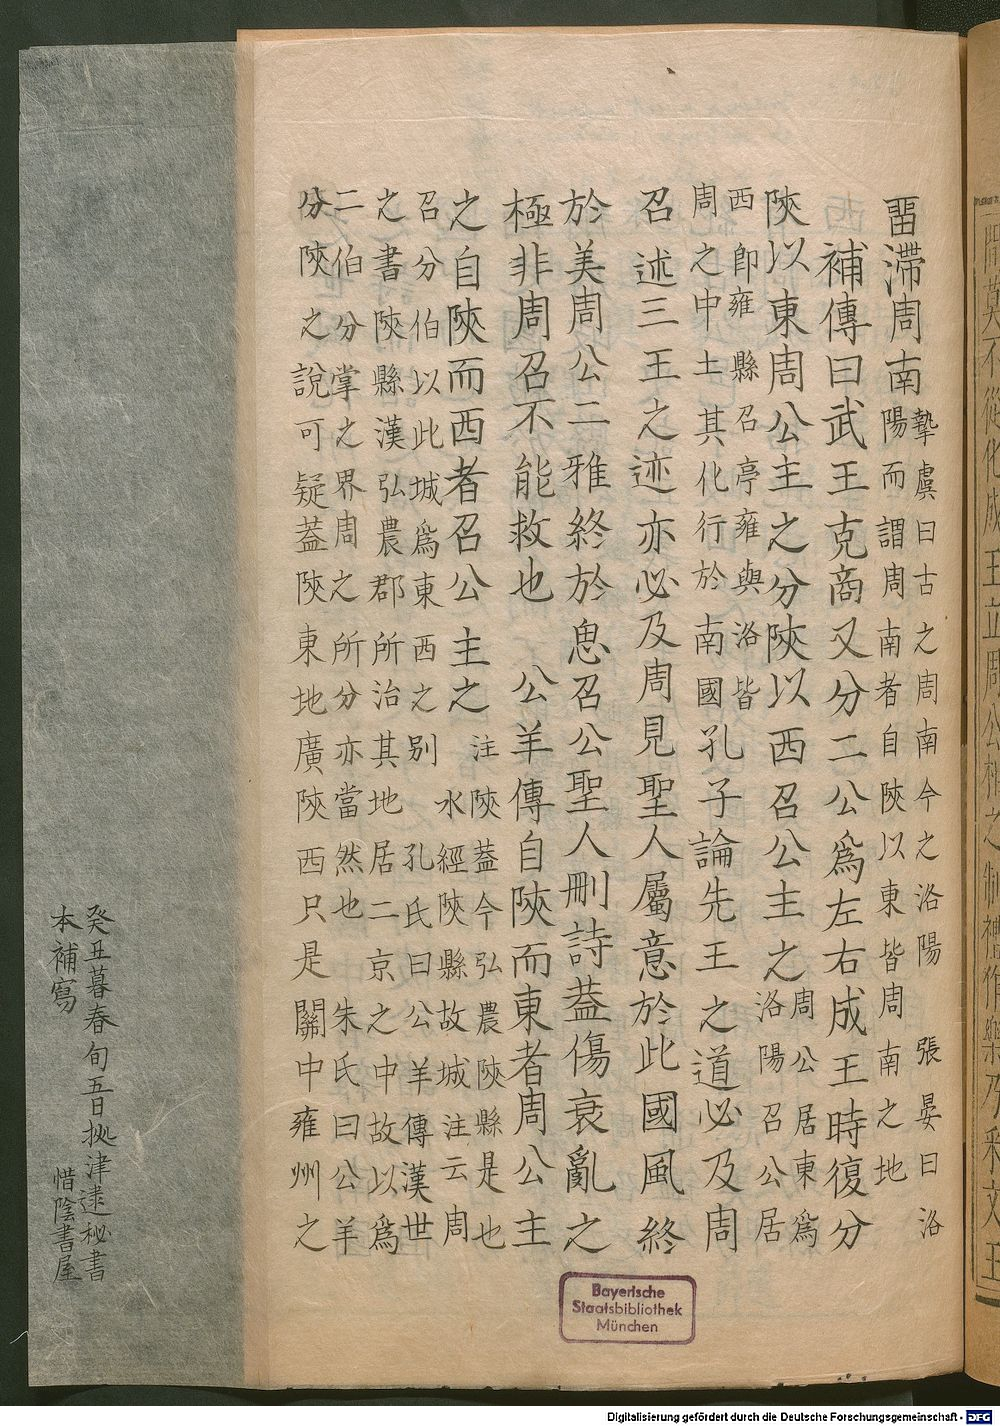 畱滯周南
摯虞曰古之周南今之洛陽　張晏曰洛
陽而謂周南者自陝以東皆周南之地
補傳曰武王克商又分二公爲左右成王時復分
陝以東周公主之分陝以西召公主之
周公居東爲
洛陽召公居
西卽雍縣召亭雍與洛皆
周之中土其化行於南國
孔子論先王之道必及周
召述三王之迹亦必及周見聖人屬意於此國風終
於美周公二雅終於恖召公聖人刪詩蓋傷衰亂之
極非周召不能救也　公羊傳自陝而東者周公主
之自陝而西者召公主之
注陝蓋今弘農陝縣是也
水經陝縣故城注云周
召分伯以此城爲東西之別　孔氏曰公羊傳漢世
之書陝縣漢弘農郡所治其地居二京之中故以爲
二伯分掌之界周之所分亦當然也　朱氏曰公羊
分陝之說可疑蓋陝東地廣陝西只是關中雍州之
癸丑暮春旬五日津逮秘書
本補寫　惜陰書屋
Bayerische
Staatsbibliothek
München
Digitalisierung gefördert durch die Deutsche Forschungsgemeinschaft - DFG